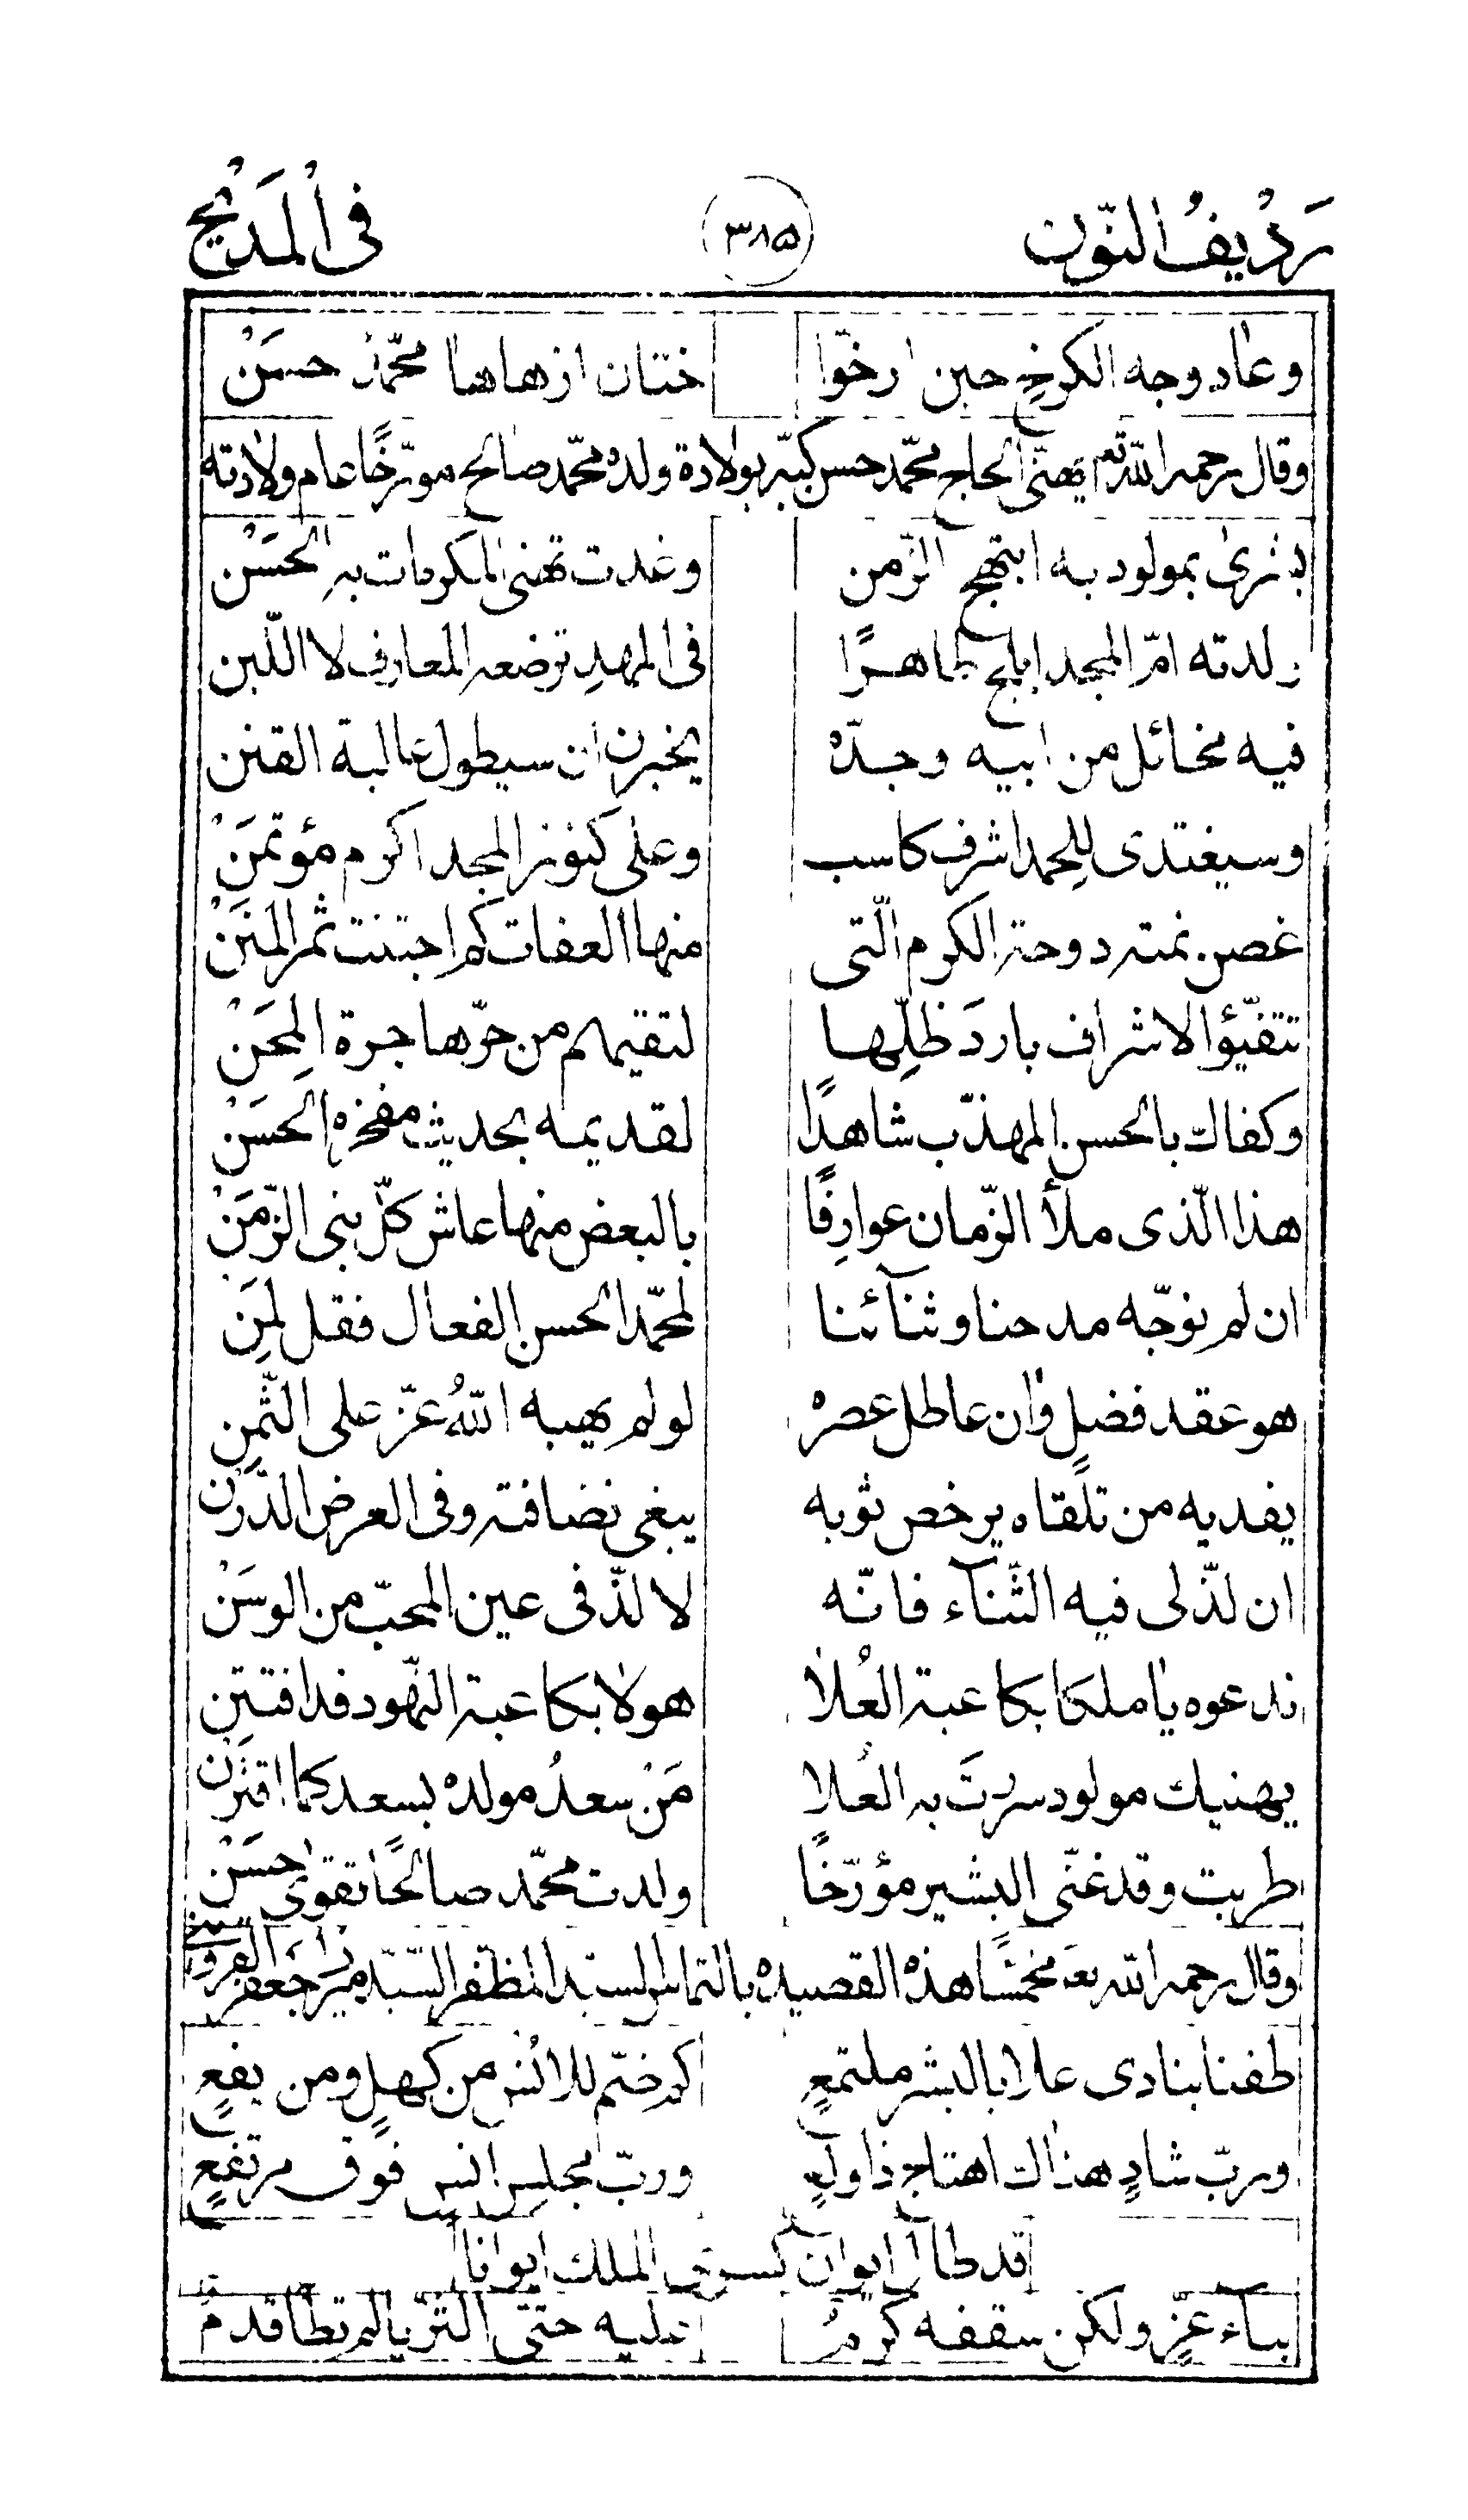 رَدْيفُ النّون ٣٨٥ فى المَدْيح
وعاد وجه الكرخ حين ارخّوا ختان ازهاها محمّدُ حسَنْ
وقال رحمه اللّه تع يهنّى الحاج محمّد حسن كبّه بولادة ولده محمّد صالح موّرخًا عام ولادته
بشرى بمولود به ابتهج الزّمن وغدت تهنى المكرمات به الحَسَنْ
ولدته امّ المجد ابلج طاهرًا فى المهدِ ترضعه المعارف لا اللّبن
فيه مخائل من ابيه وجدّه يخبرن ان سيطول عالية القنن
وسيغتدى للحمد اشرف كاسب وعلى كنوز المجد اكرم مؤتمَنْ
غصن نمته دوحة الكرم الّتى منها العفات كم اجتنت ثمر المنَنْ
تتفيّؤ الاشراف باردَ ظلِّها لتقيهم من حرّ هاجرة المِحَنْ
وكفاك بالحسن المهذّب شاهدًا لقديمه بحديث مفخره الحسَنْ
هذا الّذى ملأ الزّمان عوارِفًا بالبعض منها عاش كلّ بنى الزّمَنْ
ان لم نوجّه مدحنا وثنآئنا لمحمّد الحسن الفعال فقل لِمَنِ
هو عقد فضلٍ زان عاطل عصره لو لم يهبه اللّهُ عزّ على الثّمنِ
يفديه من تلقاه يرخص ثوبه يبغى نضافته وفى العرض الدّرن
ان لذّ لى فيه الثّنآء فانّه لا لذّ فى عين المحبّ من الوسَنْ
ندعوه يا ملكا بكاعبة العُلا هو لا بكاعبة النّهود قد افتتِن
يهنيك مولود سرَتَ به العُلا مَنْ سعدُ مولده بسعد كما اقترَن
طربت وقد غنّى البشير مؤرّخًا ولدت محمّد صالحًا تقوى حسَنْ
وقال رحمه اللّه تع مخمّسًا هذه القصيده بالتماس السيّد المظفر السّيّد ميرزا جعفر القزوينى
طفنا بنادى علا بالبشر ملتمعٍ كم ضمّ للانس من كهلٍ ومن يفعٍ
وربّ شادٍ هناك اهتاج ذا ولعٍ وربّ مجلس انس فوق مرتفعٍ
قد طال ايوان كسرى الملك ايوانا
بنآء عزٍّ ولكن سقفه كرمُ عليه حتّى الثّريا لم تطأ قدمُ